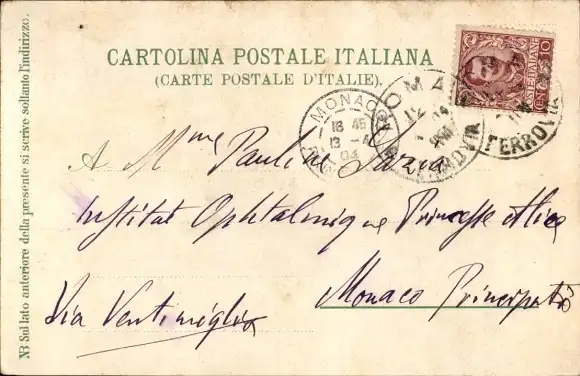 CARTOLINA POSTALE ITALIANA
(CARTE POSTALE D'ITALIE).
NB Sul lato anteriore della presente si scrive soltanto l'indirizzo.
POSTE ITALIANE
CENT. 10
MONACO
18 45
13
04
ROMA
12
FERROVIA
FERROVIA
A Mme Pauline
Institut Ophtalmique Princesse Alice
Monaco Principato
Via Ventimiglia